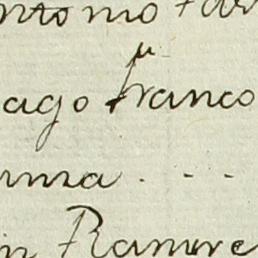 ntonio
ago Franco
nna . . .
in Ramire